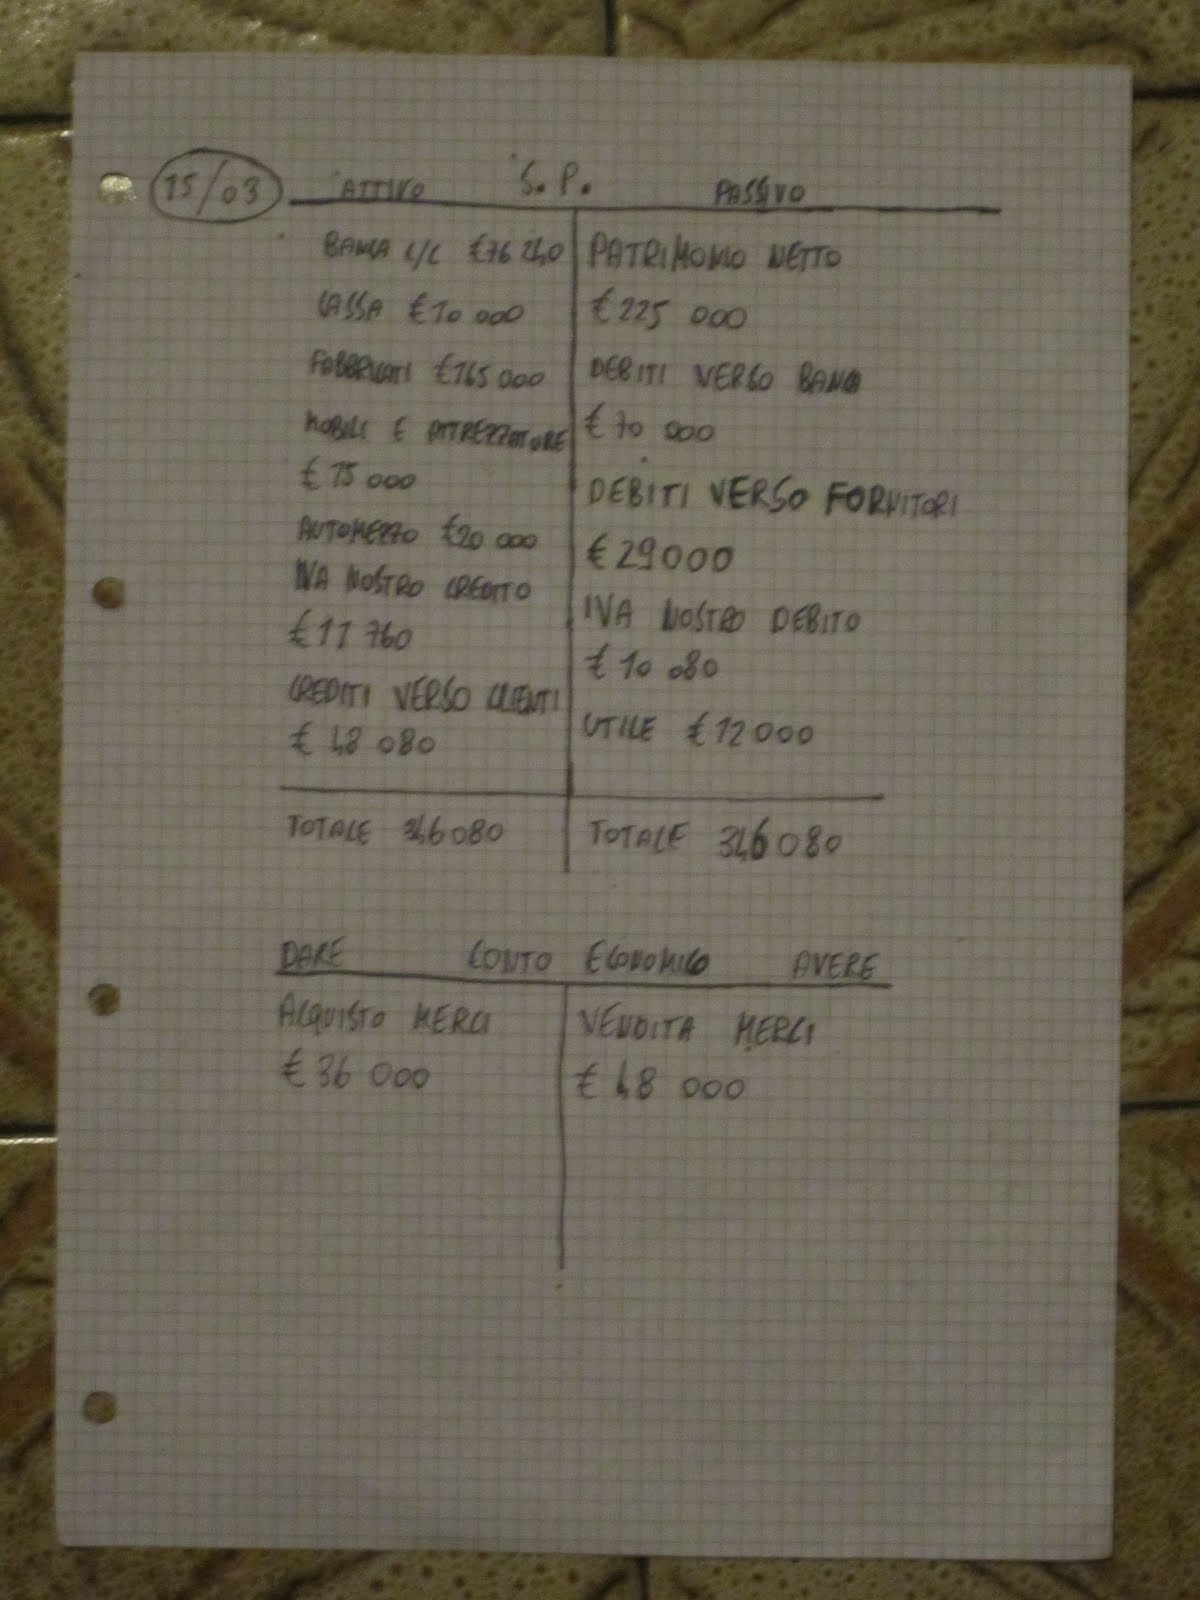 15/03
ATTIVO S.P. PASSIVO
BANCA C/C €76 240
CASSA €10 000
FABBRICATI €165 000
MOBILI E ATTREZZATURE
€ 15 000
AUTOMEZZO €20 000
IVA NOSTRO CREDITO
€ 11 760
CREDITI VERSO CLIENTI
€ 48 080
TOTALE 346080
PATRIMONIO NETTO
€ 225 000
DEBITI VERSO BANCA
€ 70 000
DEBITI VERSO FORNITORI
€ 29000
IVA NOSTRO DEBITO
€ 10 080
UTILE €12 000
TOTALE 346080
DARE CONTO ECONOMICO AVERE
ACQUISTO MERCI
€ 36 000
VENDITA MERCI
€ 48 000